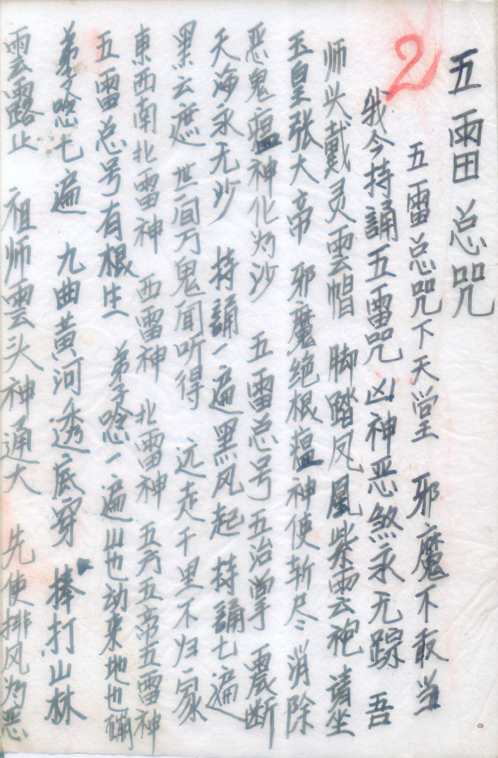 五雷总咒
2
五雷总咒下天堂 邪魔不敢当
我今持誦五雷咒 凶神恶煞永无踪 吾
师头戴灵雲帽 脚踏凤凰紫雲袍 请坐
玉皇张大帝 邪魔绝根瘟神使斩尽 消除
恶鬼瘟神化为沙 五雷总号五治掌 震断
天海永无沙 持誦一遍黑风起 持誦七遍
黑云遮 世间万鬼闻听得 远走千里不归家
東西南北雷神 西雷神 北雷神 五方五帝五雷神
五雷总号有根生 弟子唸一遍山也动来地也
弟子唸七遍 九曲黄河透底穿 捧打山林
雲露止 祖师雲头神通大 先使排风为恶